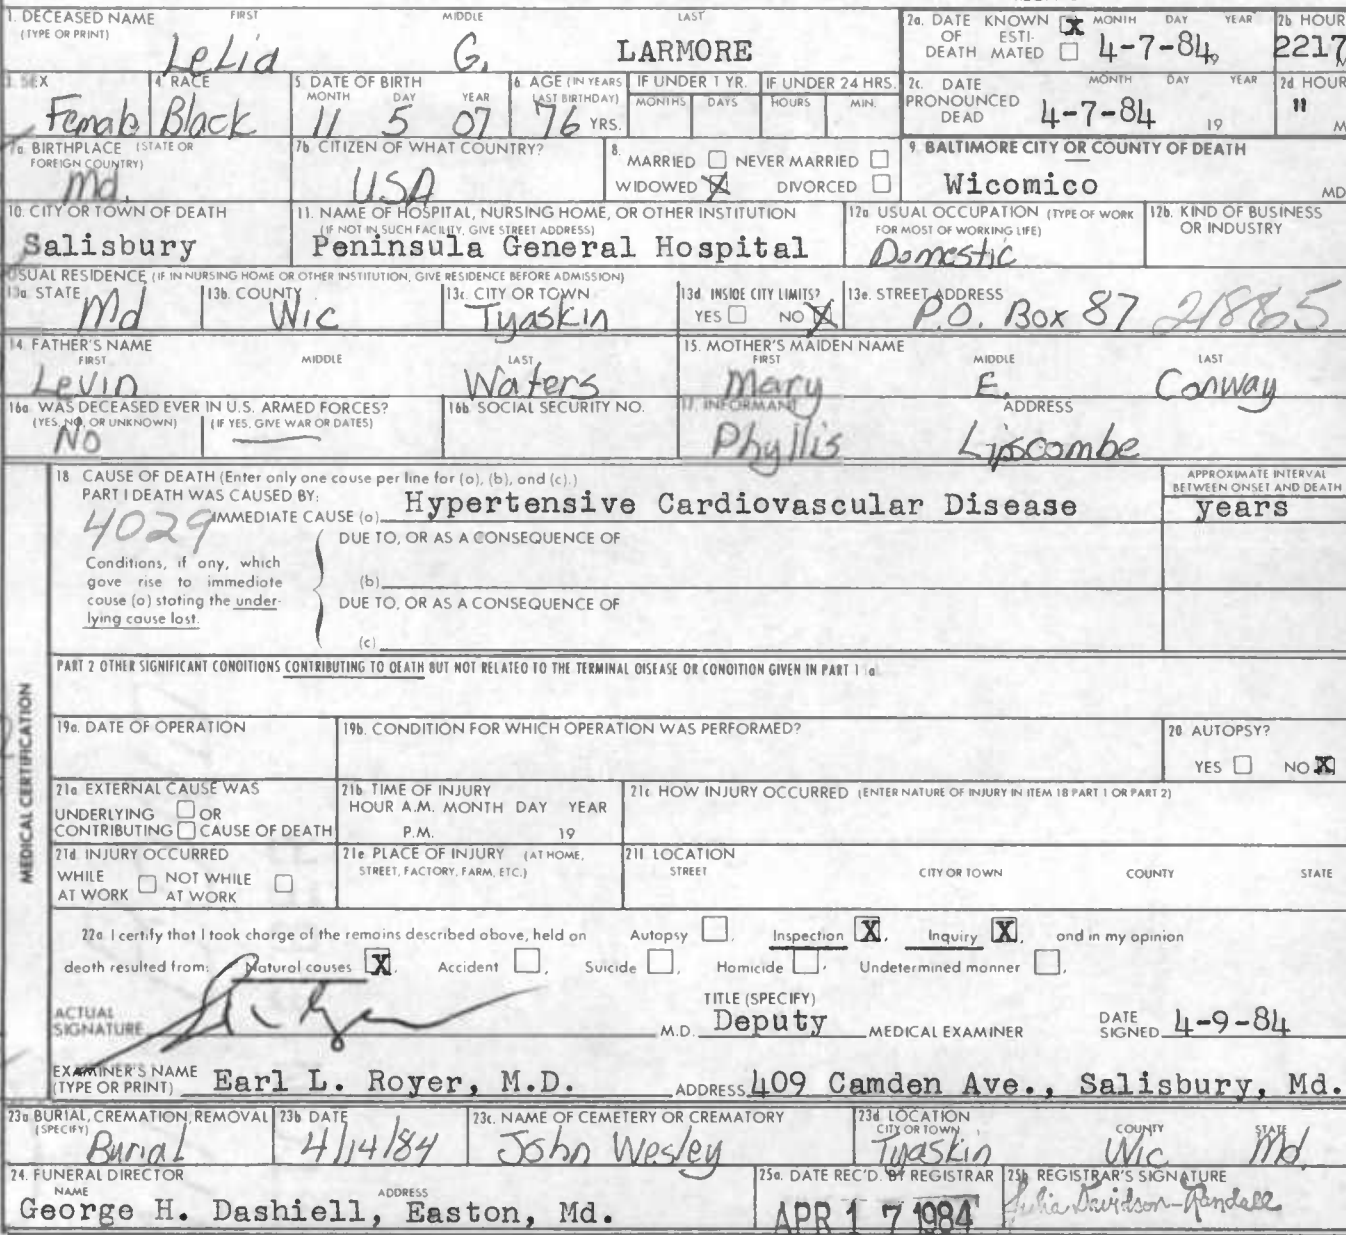 1. DECEASED NAME FIRST MIDDLE LAST
(TYPE OR PRINT)
Lelia G. LARMORE
2a. DATE KNOWN X MONTH DAY YEAR
OF ESTI-
DEATH MATED 4-7-84
2b HOUR
2217 M
3. SEX
Female
4. RACE
Black
5. DATE OF BIRTH
MONTH DAY YEAR
11 5 07
6. AGE (IN YEARS
LAST BIRTHDAY)
76 YRS.
IF UNDER 1 YR.
MONTHS DAYS
IF UNDER 24 HRS.
HOURS MIN.
2c. DATE MONTH DAY YEAR
PRONOUNCED
DEAD 4-7-84 19
2d HOUR
" M
7a BIRTHPLACE (STATE OR
FOREIGN COUNTRY)
Md.
7b CITIZEN OF WHAT COUNTRY?
USA
8. MARRIED NEVER MARRIED
WIDOWED X DIVORCED
9. BALTIMORE CITY OR COUNTY OF DEATH
Wicomico MD
10. CITY OR TOWN OF DEATH
Salisbury
11. NAME OF HOSPITAL, NURSING HOME, OR OTHER INSTITUTION
(IF NOT IN SUCH FACILITY, GIVE STREET ADDRESS)
Peninsula General Hospital
12a USUAL OCCUPATION (TYPE OF WORK
FOR MOST OF WORKING LIFE)
Domestic
12b. KIND OF BUSINESS
OR INDUSTRY
USUAL RESIDENCE (IF IN NURSING HOME OR OTHER INSTITUTION, GIVE RESIDENCE BEFORE ADMISSION)
13a. STATE
Md
13b. COUNTY
Wic
13c. CITY OR TOWN
Tyaskin
13d INSIDE CITY LIMITS?
YES NO X
13e. STREET ADDRESS
P.O. Box 87 21865
14. FATHER'S NAME
FIRST MIDDLE LAST
Levin Waters
15. MOTHER'S MAIDEN NAME
FIRST MIDDLE LAST
Mary E. Conway
16a WAS DECEASED EVER IN U.S. ARMED FORCES?
(YES, NO, OR UNKNOWN) (IF YES, GIVE WAR OR DATES)
No
16b SOCIAL SECURITY NO.
17. INFORMANT ADDRESS
Phyllis Lipscombe
MEDICAL CERTIFICATION
18 CAUSE OF DEATH (Enter only one cause per line for (a), (b), and (c).)
PART I DEATH WAS CAUSED BY:
4029
IMMEDIATE CAUSE (a) Hypertensive Cardiovascular Disease
APPROXIMATE INTERVAL
BETWEEN ONSET AND DEATH
years
DUE TO, OR AS A CONSEQUENCE OF
Conditions, if any, which
gave rise to immediate
cause (a) stating the under-
lying cause last.
(b)
DUE TO, OR AS A CONSEQUENCE OF
(c)
PART 2 OTHER SIGNIFICANT CONDITIONS CONTRIBUTING TO DEATH BUT NOT RELATED TO THE TERMINAL DISEASE OR CONDITION GIVEN IN PART 1 a
19a. DATE OF OPERATION
19b. CONDITION FOR WHICH OPERATION WAS PERFORMED?
20 AUTOPSY?
YES NO X
21a EXTERNAL CAUSE WAS
UNDERLYING OR
CONTRIBUTING CAUSE OF DEATH
21b TIME OF INJURY
HOUR A.M. MONTH DAY YEAR
P.M. 19
21c HOW INJURY OCCURRED (ENTER NATURE OF INJURY IN ITEM 18 PART 1 OR PART 2)
21d INJURY OCCURRED
WHILE NOT WHILE
AT WORK AT WORK
21e PLACE OF INJURY (AT HOME,
STREET, FACTORY, FARM, ETC.)
21f LOCATION
STREET CITY OR TOWN COUNTY STATE
22a I certify that I took charge of the remains described above, held on Autopsy , Inspection X , Inquiry X , and in my opinion
death resulted from: Natural causes X , Accident , Suicide , Homicide , Undetermined manner ,
ACTUAL
SIGNATURE M.D.
TITLE (SPECIFY)
Deputy MEDICAL EXAMINER
DATE
SIGNED 4-9-84
EXAMINER'S NAME
(TYPE OR PRINT) Earl L. Royer, M.D. ADDRESS 409 Camden Ave., Salisbury, Md.
23a BURIAL, CREMATION, REMOVAL
(SPECIFY)
Burial
23b DATE
4/14/84
23c. NAME OF CEMETERY OR CREMATORY
John Wesley
23d LOCATION
CITY OR TOWN COUNTY STATE
Tyaskin Wic Md.
24. FUNERAL DIRECTOR
NAME ADDRESS
George H. Dashiell, Easton, Md.
25a. DATE REC'D. BY REGISTRAR
APR 17 1984
25b REGISTRAR'S SIGNATURE
Julia Davidson-Randall